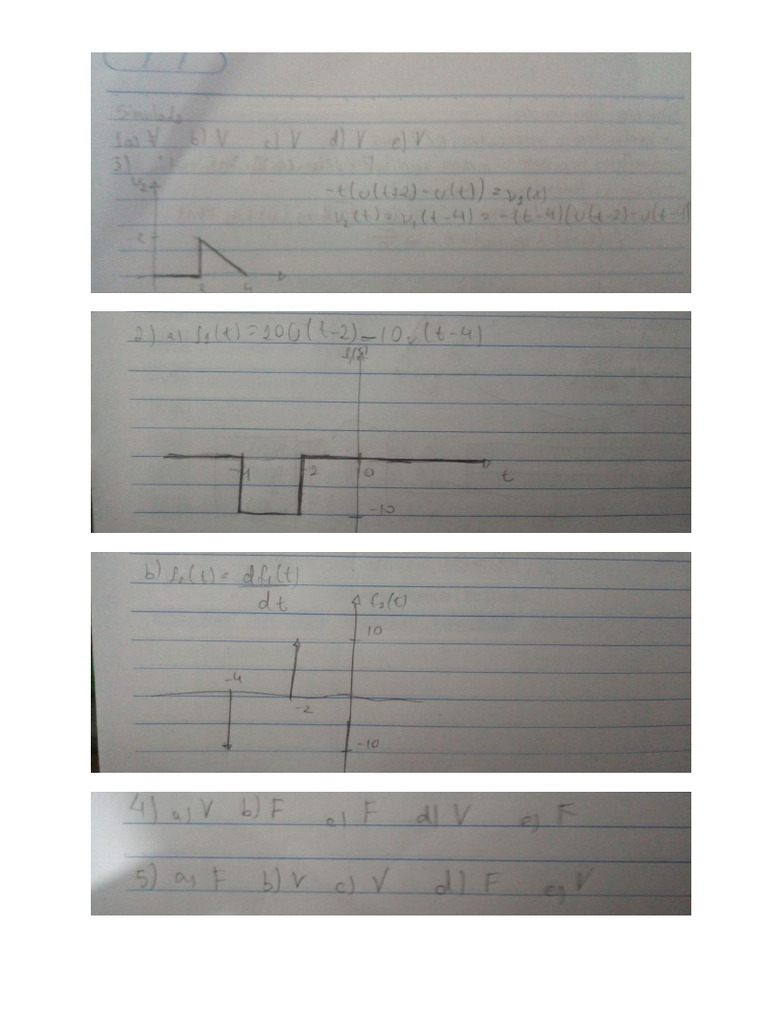 Simulado
1) a) V b) V c) V d) V e) V
3)
v2
-t(u(t+2) - u(t)) = v1(t)
v2(t) = v1(t-4) = -(t-4)(u(t-2) - u(t-4)
2
2 4
2) a) f1(t) = 20u(t-2) - 10u(t-4)
-4 -2 0 t
-10
b) f2(t) = d f1(t)
dt
f2(t)
10
-4
-2
-10
4) a) V b) F c) F d) V e) F
5) a) F b) V c) V d) F e) V